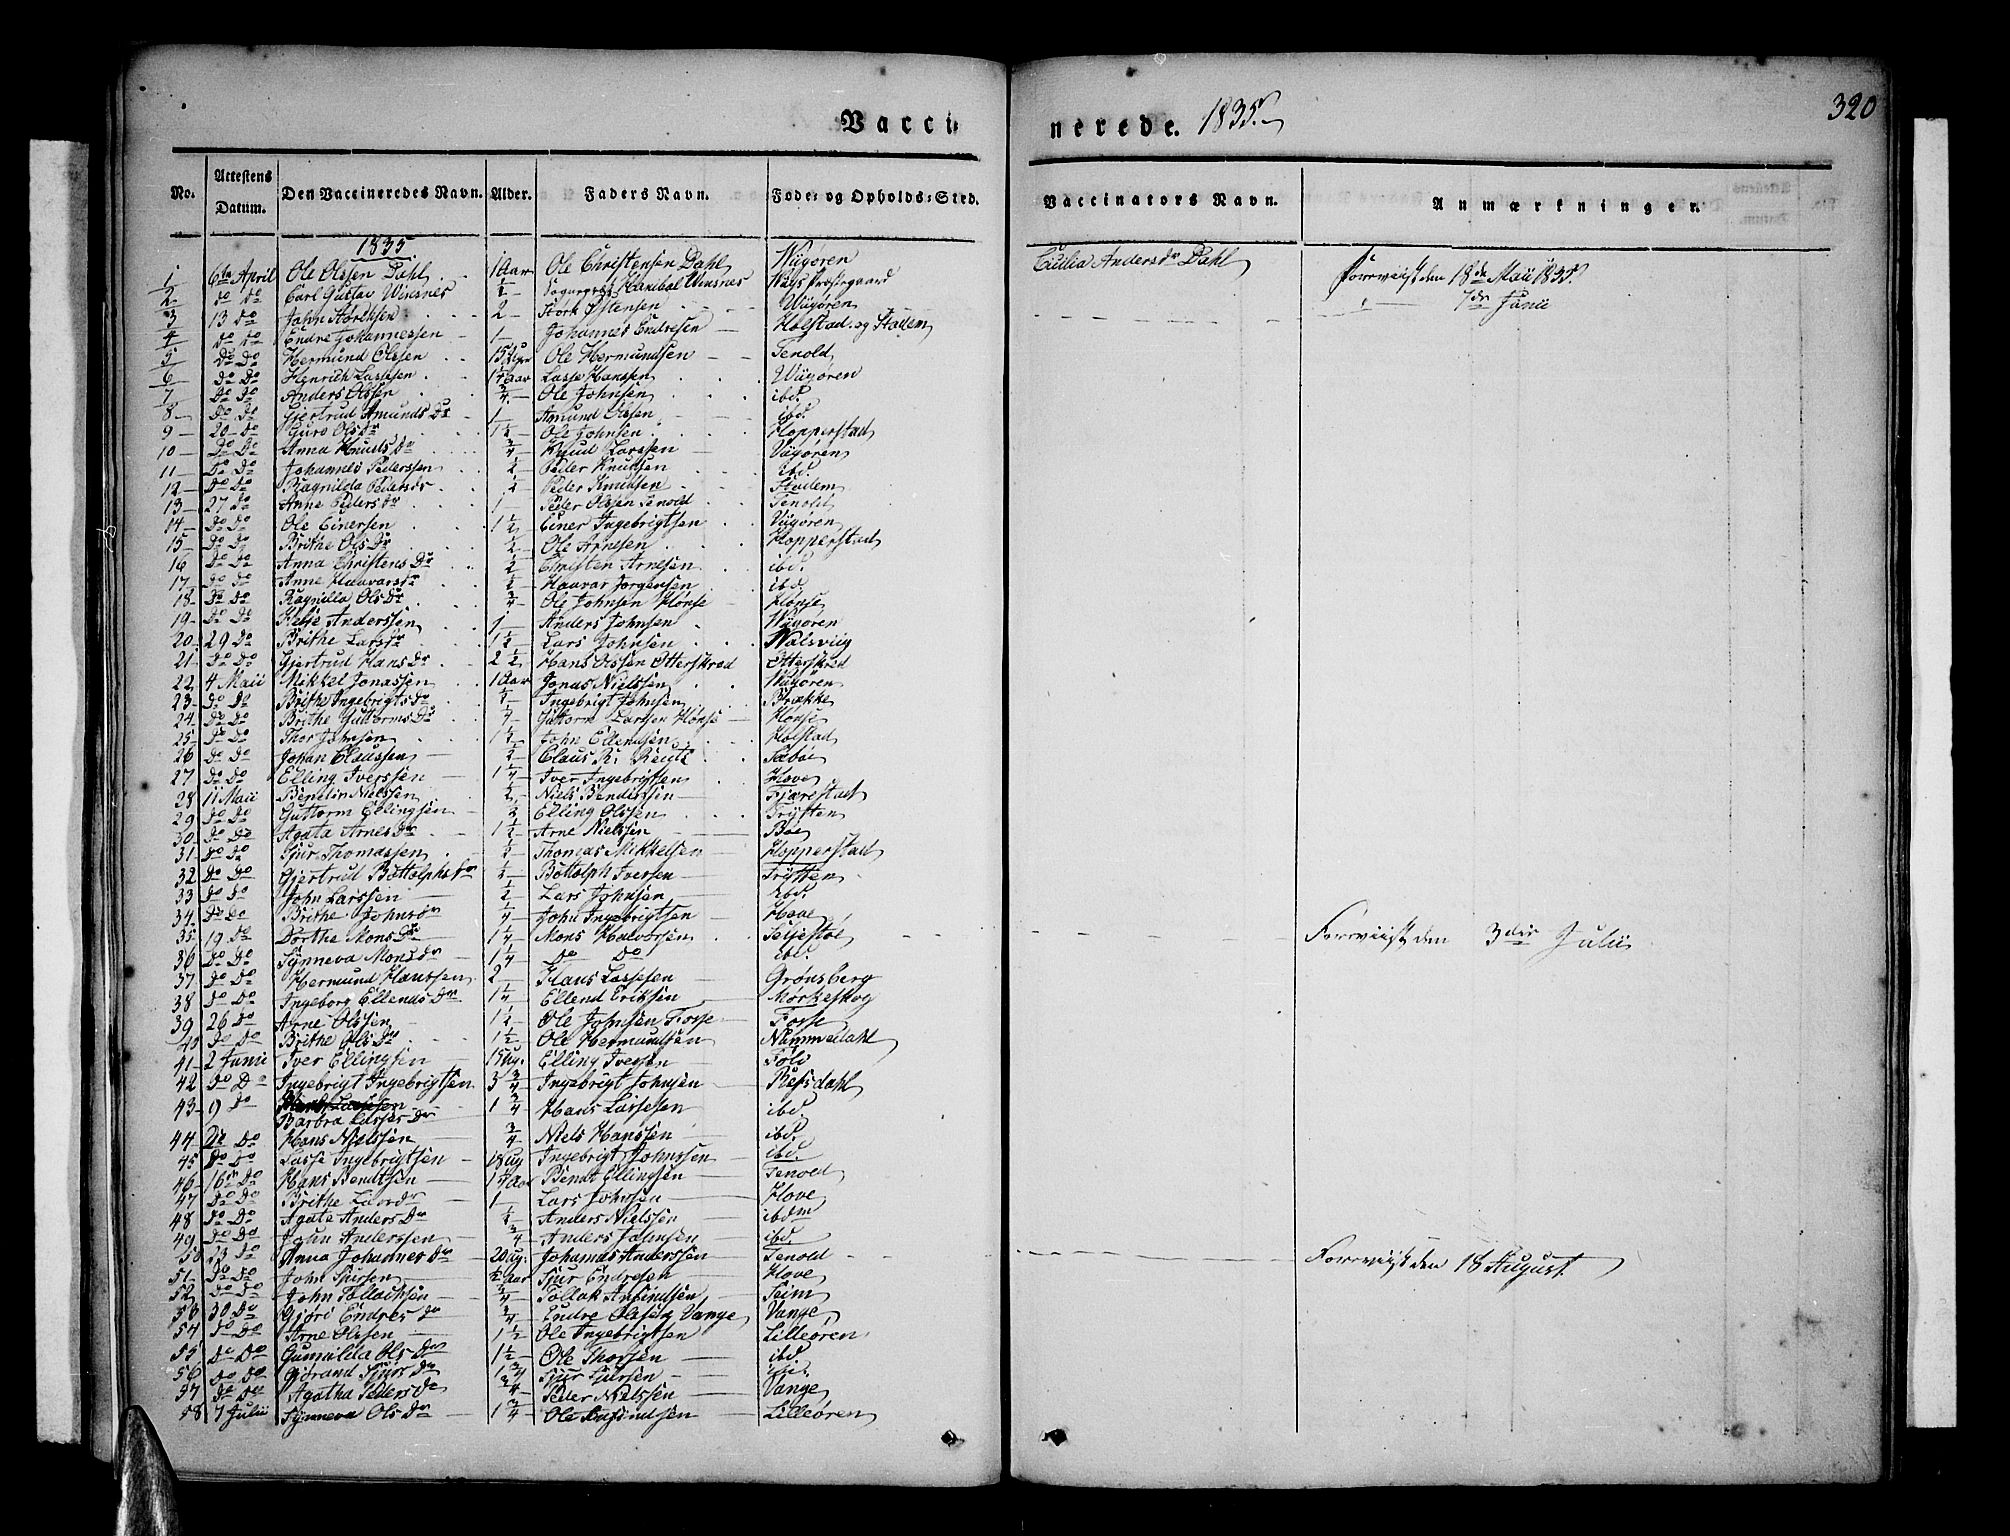 320
Vaccinerede. 1835.
No. Attestens Datum. Den Vaccineredes Navn. Alder. Faders Navn. Føde- og Opholds-Sted. Vaccinators Navn. Anmærkninger.
1835
1 6te April Ole Olssen Dahl 1 Aar Ole Christensen Dahl Wiigøren Andersdr Dahl Forevist den 18de Maii 1835.
2 Do Do Carl Gustav Winsnes Hanibal Winsnes Wiigs Præstegaard 7de Junii
3 13 Do John Størksen 2 Størk Østensen Wiigøren
4 Do Do Endre Johannessen 1 Johannes Endresen Holstad og Stadem
5 Do Do Hermund Olssen 15 Uger Ole Hermundsen Tenold
6 Do Do Henrich Lassesen Aar Lasse Hanssen Wiigøren
7 Do Do Anders Olssen 3/4 Ole Johnsen ibd.
8 Do Do Gjertrud Amunds Dr 1 Amund Olssen ibd.
9 20 Do Guro Olsdr 1 1/2 Ole Johnsen Hopperstad
10 Do Do Anna Knuds Dr 3/4 Knud Larssen Viigøren
11 Do Do Johannes Pederssen 1/2 Peder Knudsen ibd.
12 Do Do Ragnilda Pedersdr 1/2 Peder Knudsen Stadem
13 27 Do Anne Pedersdr 1 Peder Olssen Tenold Tenold
14 Do Do Ole Einersen 1 1/2 Einer Ingebrigtsen Viigøren
15 Do Do Brithe Ols Dr 1/2 Ole Arnesen Hopperstad
16 Do Do Anna Christens Dr 1/2 Christen Arnesen ibd.
17 Do Do Anne Haavarsdr 1/2 Haavar Jørgensen ibd.
18 Do Do Ragnilla Ols Dr 3/4 Ole Johnsen Hønse Hønse
19 Do Do Helje Anderssen 1 Anders Johnsen Wiigøren
20 29 Do Brithe Larsdr Lars Johnsen Nalsviig
21 Do Do Gjertrud Hans Dr 2 1/2 Hans Olssen Otterskred Otterskred
22 4 Maii Mikkel Jonassen 1 Aar Jonas Nielssen Wiigøren
23 Do Do Brithe Ingebrigts Dr Ingebrigt Johnsen Brække
24 Do Do Brithe Guttorms Dr Guttorm Larssen Hønse Hønse
25 Do Do Thor Johnsen John Ellendsen Holstad
26 Do Do Johan Claussen 1/2 Claus Sæbøe
27 Do Do Elling Iverssen 1 1/4 Iver Ingebrigtsen Hove
28 11 Maii Nielssen 1/2 Niels Fjærestad
29 Do Do Guttorm Ellingsen 2 Elling Olssen
30 Do Do Agata Arnes Dr 1 1/2 Arne Nielssen Bøe
31 Do Do Sjur Thomassen 1/2 Thomas Mikkelsen Hopperstad
32 Do Do Gjertrud Bottolphsdr Bottolph Iversen
33 Do Do John Larssen 1/2 Lars Johnsen ibd.
34 Do Do Brithe Johnsdr John Ingebrigtsen Hove
35 19 Do Dorthe Mons Dr 1 1/4 Mons Halvorsen Forevist den 3die Julii
36 Do Do Synneva Monsdr 1 1/4 Do Do ibd.
37 Do Do Hermund Hanssen 2 Hans Lassesen Grønsberg
38 Do Do Ingeborg Ellends Dr 1 1/4 Ellend Eriksen Mørkeskog
39 26 Do Arne Olssen 1 1/2 Ole Johnsen Fosse Fosse
40 Do Do Brithe Ols Dr 1 1/2 Ole Hermundsen Nummedahl
41 2 Junii Iver Ellingsen 15 Ug. Elling Iversen
42 Do Do Ingebrigt Ingebrigtsen 3 3/4 Ingebrigt Johnsen Refsdahl
43 9 Do Lassesen 1 3/4 Hans Lassesen ibd.
Barbra Lasses Dr
44 Do Do Hans Nielssen 3/4 Niels Hanssen ibd.
45 Do Do Lasse Ingebrigtsen 18 Ug Ingebrigt Johnssen ibd.
46 16 Do Hans Bendtsen Aar Bendt Ellingsen Tenold
47 Do Do Brithe Larsdr 1 Lars Johnsen Hove
48 Do Do Agate Anders Dr Anders Nielssen ibdm
49 Do Do John Anderssen 3/4 Anders Johnsen ibd.
50 23 Do Anna Johannes Dr 20 Ug. Johannes Anderssen Tenold Forevist den 18 August
51 Do Do John Sjursen 1/2 Aar Sjur Endresen Hove
52 Do Do John Tollachsen 3/4 Tollak Seim
53 30 Do Gjøri Endres Dr 3/4 Endre Olssen Vange Vange
54 Do Do Arne Olssen 1 1/2 Ole Ingebrigtsen Lilleøren
55 Do Do Gunnilda Ols Dr 1 1/2 Ole Thorsen ibd
56 Do Do Gjørand Sjurs Dr 1 3/4 Sjur
57 Do Do Agatha Peders Dr 3/4 Peder Nielssen Vange
58 7 Julii Synneva Ols Dr 1 3/4 Ole Lilleøren